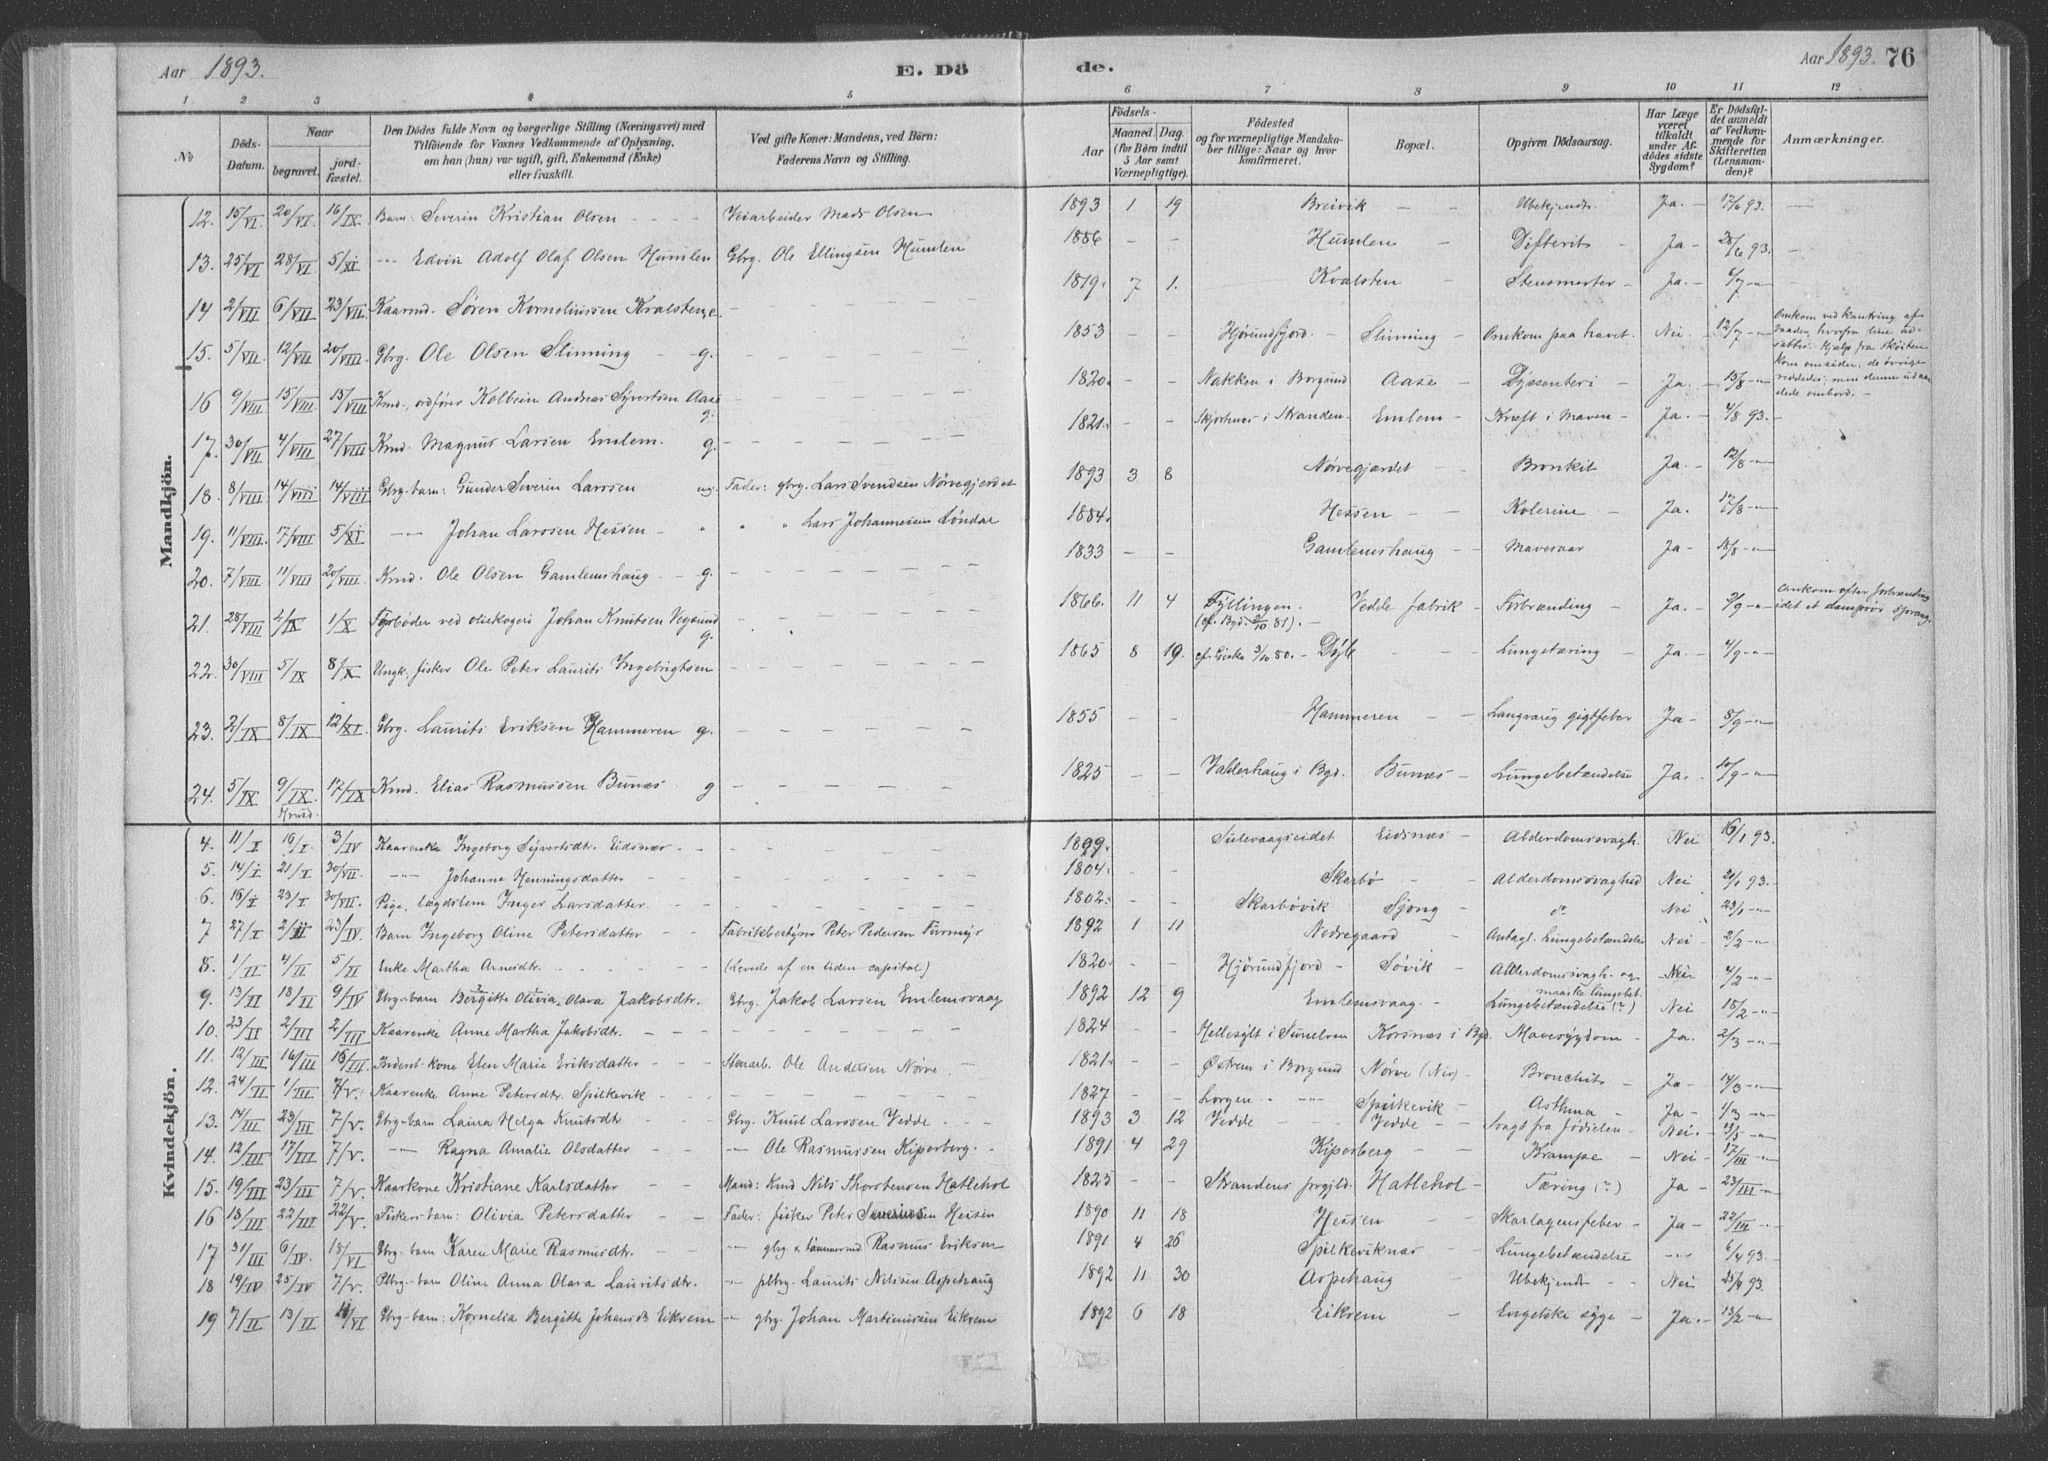 Aar 1893. E. Dö de. Aar 1893. 76
1 2 3 4 5 6 7 8 9 10 11 12
No
Döds-Datum.
Naar
begravet.
jord-fæstet.
Den Dödes fulde Navn og borgerlige Stilling (Næringsvei) med
Tilföiende for Voxnes Vedkommende af Oplysning,
om han (hun) var ugift, gift, Enkemand (Enke)
eller fraskilt.
Ved gifte Koner: Mandens, ved Börn:
Faderens Navn og Stilling.
Födsels-
Aar
Maaned. Dag.
(for Börn indtil
5 Aar samt
Værnepligtige).
Födested
og for værnepligtige Mandska-
ber tillige: Naar og hvor
konfirmeret.
Bopæl.
Opgiven Dödsaarsag.
Har Læge
været
tilkaldt
under Af-
dödes sidste
Sygdom?
Er Dödsfal-
det anmeldt
af Vedkom-
mende for
Skifteretten
(Lensman-
den)?
Anmærkninger.
Mandkjön.
12. 15/VI 20/VI 16/IX Barn: Severin Kristian Olsen - - - Veiarbeider Mads Olsen 1893 1 19 Breivik - - Ubekjendt. Ja. 17/6 93. -
13. 25/VI 28/VI 5/XI -"- Edvin Adolf Olaf Olsen Humlen Gbrg. Ole Ellingsen Humlen 1886 - - Humlen - Difterit - Ja - 28/6 93. -
14 2/VII 6/VII 23/VII. Kaarmd. Søren Kornelinssen Kvalsten, e. - 1819. 7 1. Kvalsten - Stensmerter - Ja. 6/7 -"-
15. 5/VII. 12/VII 20/VIII. Gbrg. Ole Olsen Slinning - g. - 1853 - - Hjørundfjord. - Slinning - Omkom paa havet. Nei 12/7 -"- Omkom ved kantring af
baaden, hvorfra line ud-
sattes. Hjælp fra skøiten
kom omsider, de øvrige
reddedes; men denne udaan-
dede ombord. -
16 9/VIII 15/VIII. 15/VIII Kmd., ordfører Kolbein Andreas Syvertsen Aase g. - 1820. - - Nakken i Borgund Aase - Dyssenteri - Ja. 15/8 -"-
17. 30/VII 4/VIII 27/VIII Kmd. Magnus Larsen Emlem. g. - 1821. - - Skjortnes i Stranden. Emlem - Kræft i Maven - Ja. - 4/8 93. -
18. 8/VIII 14/VIII 14/VIII Gbrg-barn: Gunder Severin Larsen ug. Fader: gbrg. Lars Svendsen Nørvegjerdet 1893 3 8 Nørvegjærdet - Bronkit - Ja. - 12/8 -"-
19. 11/VIII. 17/VIII 5/XI -"- Johan Larssen Hessen - " " " Lars Johannessen Løndal 1884. Hessen - - Kolerine - Ja. 17/8 -"-
20. 7/VIII 11/VIII 20/VIII. Kmd. Ole Olsen Gamlemshaug - g. - 1833 - - Gamlemshaug - - Mavesaar Ja - 18/8 -"-
21. 28/VIII 2/IX 1/X Fyrbøder ved oliekogeri Johan Knutsen Vegsund g. - 1866. 11 4 Fyllingen. (cf. Bgd. 2/10 81). - Vedde fabrik - Forbrænding - Ja. - 2/9 -"- Omkom efter forbrænding
idet et damprør sprang.
22. 30/VIII 5/IX 8/X Ungk., fisker Ole Peter Laurits Ingebrigtsen - 1865 8 19. cf. Giske 3/10 80. - Dyb - - Lungetæring - Ja. - 4/9 -"-
23. 2/IX 8/IX 12/XI. Gbrg. Laurits Eriksen Hammeren g. - 1855 - - Hammeren - - Langvarig gigtfeber Ja - 8/9 -"-
24. 5/IX 9/IX. Hrusd. 17/IX Kmd. Elias Rasmussen Bunæs. g - 1825 - - Valderhaug i Bgd. Bunæs - Lungebetændelse Ja. - 10/9 -"-
Kvindekjön.
4. 11/I 16/I. 3/IV Kaarenke Ingeborg Syvertsdtr. Eidsnæs - - 1899. Sulevaagseidet Eidsnæs - Alderdomssvagh. Nei 16/1 93.
5. 14/I 21/I 30/VII -"- Johanne Henningsdatter - - 1804. - Skarbø - Alderdomssvaghed Nei - 21/1 93. -
6. 16/I 23/I 30/VII. Pige, lægdslem Inger Larsdatter - - 1802. - - Skarbøvik Sjong - do Nei 23/1 -"-
7 27/I 2/II 23/IV. Barn Ingeborg Oline Petersdatter - Fabrikbestyrer Peter Pedersen Furmyr 1892 1 11 Nedregaard - Antagl. Lungebetændelse Nei - 2/2 -"-
8. 1/II 4/II 5/II Enke Martha Arnesdtr. - - - (Levede af en liden capital) 1820. - - Hjørundfjord - Søvik - Alderdomssvagh. og maaske lungebet. Nei 4/2 -"-
9. 13/II 18/II 9/IV Gbrg-barn Bergitte Olivia Olava Jakobsdtr. Gbrg. Jakob Larsen Emlemsvaag 1892 12 9 Emlemsvaag. - Lungebetændelse (?) Nei 18/2 -"-
10. 23/II 2/III 2/III Kaarenke Anne Martha Jakobsdtr. - - 1824 - - Hellesylt i Sunelven Korsnæs i Bgd. Mavesygdom - Ja. 2/3 -"-
11. 12/III 16/III 16/III. Inderst-kone Elen Marie Eriksdatter - Stenarb. Ole Andersen Nørve. - 1821. - - Østrem i Borgund Nørve (Nis) - Bronchit - Ja - 14/3 -"-
12. 24/II 1/III 7/V. Kaarenke Anne Petersdtr. Spilkevik - - 1827 - - Lorgen - -"- Spilkevik - Asthma - Ja - 1/3 -"-
13. 14/III 23/III 7/V. Gbrg-barn Laura Helga Knutsdtr - Gbrg. Knut Larssen Vedde - - - 1893 3 12 Vedde - - Vedde - Svagt fra fødselen - Nei. 13/5 -"-
14. 12/III 17/III 7/V. -"- Ragna Amalie Olsdatter - -"- Ole Rasmussen Kiperberg. - 1891 4 29 Kiperberg - - Krampe - Nei - 17/III -"-
15. 19/III 23/III 7/V. Kaarkone Kristiane Karlsdatter - Mand: Kmd Nils Thorstensen Hatlehol 1825 - - Strandens prgjld. Hatlehol - Tæring (?) Ja - 23/III -"-
16 18/III 22/III 22/V. Fiskers-barn: Olivia Petersdatter - - Fader: fisker Peter Severinsen Hessen 1890 11 18 Hessen - Skarlagensfeber - Ja - 22/III -"-
17 31/III 6/IV. 18/VI Gbrg-barn Karen Marie Rasmusdtr. -"- gbrg & tømmermd Rasmus Eriksen 1891 4 26 Spilkeviknæs - Lungebetændelse -"- 6/4 93.
18 19/IV 25/IV 7/V. Plbrg-barn Oline Anna Olava Lauritsdtr. -"- plbrg. Laurits Nilsen Aspehaug 1892 11 30 Aspehaug - Ubekjendt - - Nei 25/4 93.
19 7/II 13/II /VI Gbrg-barn: Kornelia Bergitte Johansdt Eikrem -"- gbrg. Johan Martinussen Eikrem 1892 6 18 Eikrem - Engelske syge - Ja. - 13/2 -"-